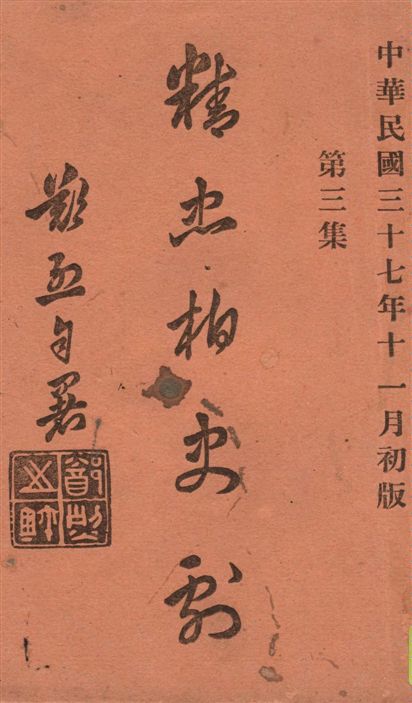 中華民國三十七年十一月初版
第三集
精忠柏史劇
自署